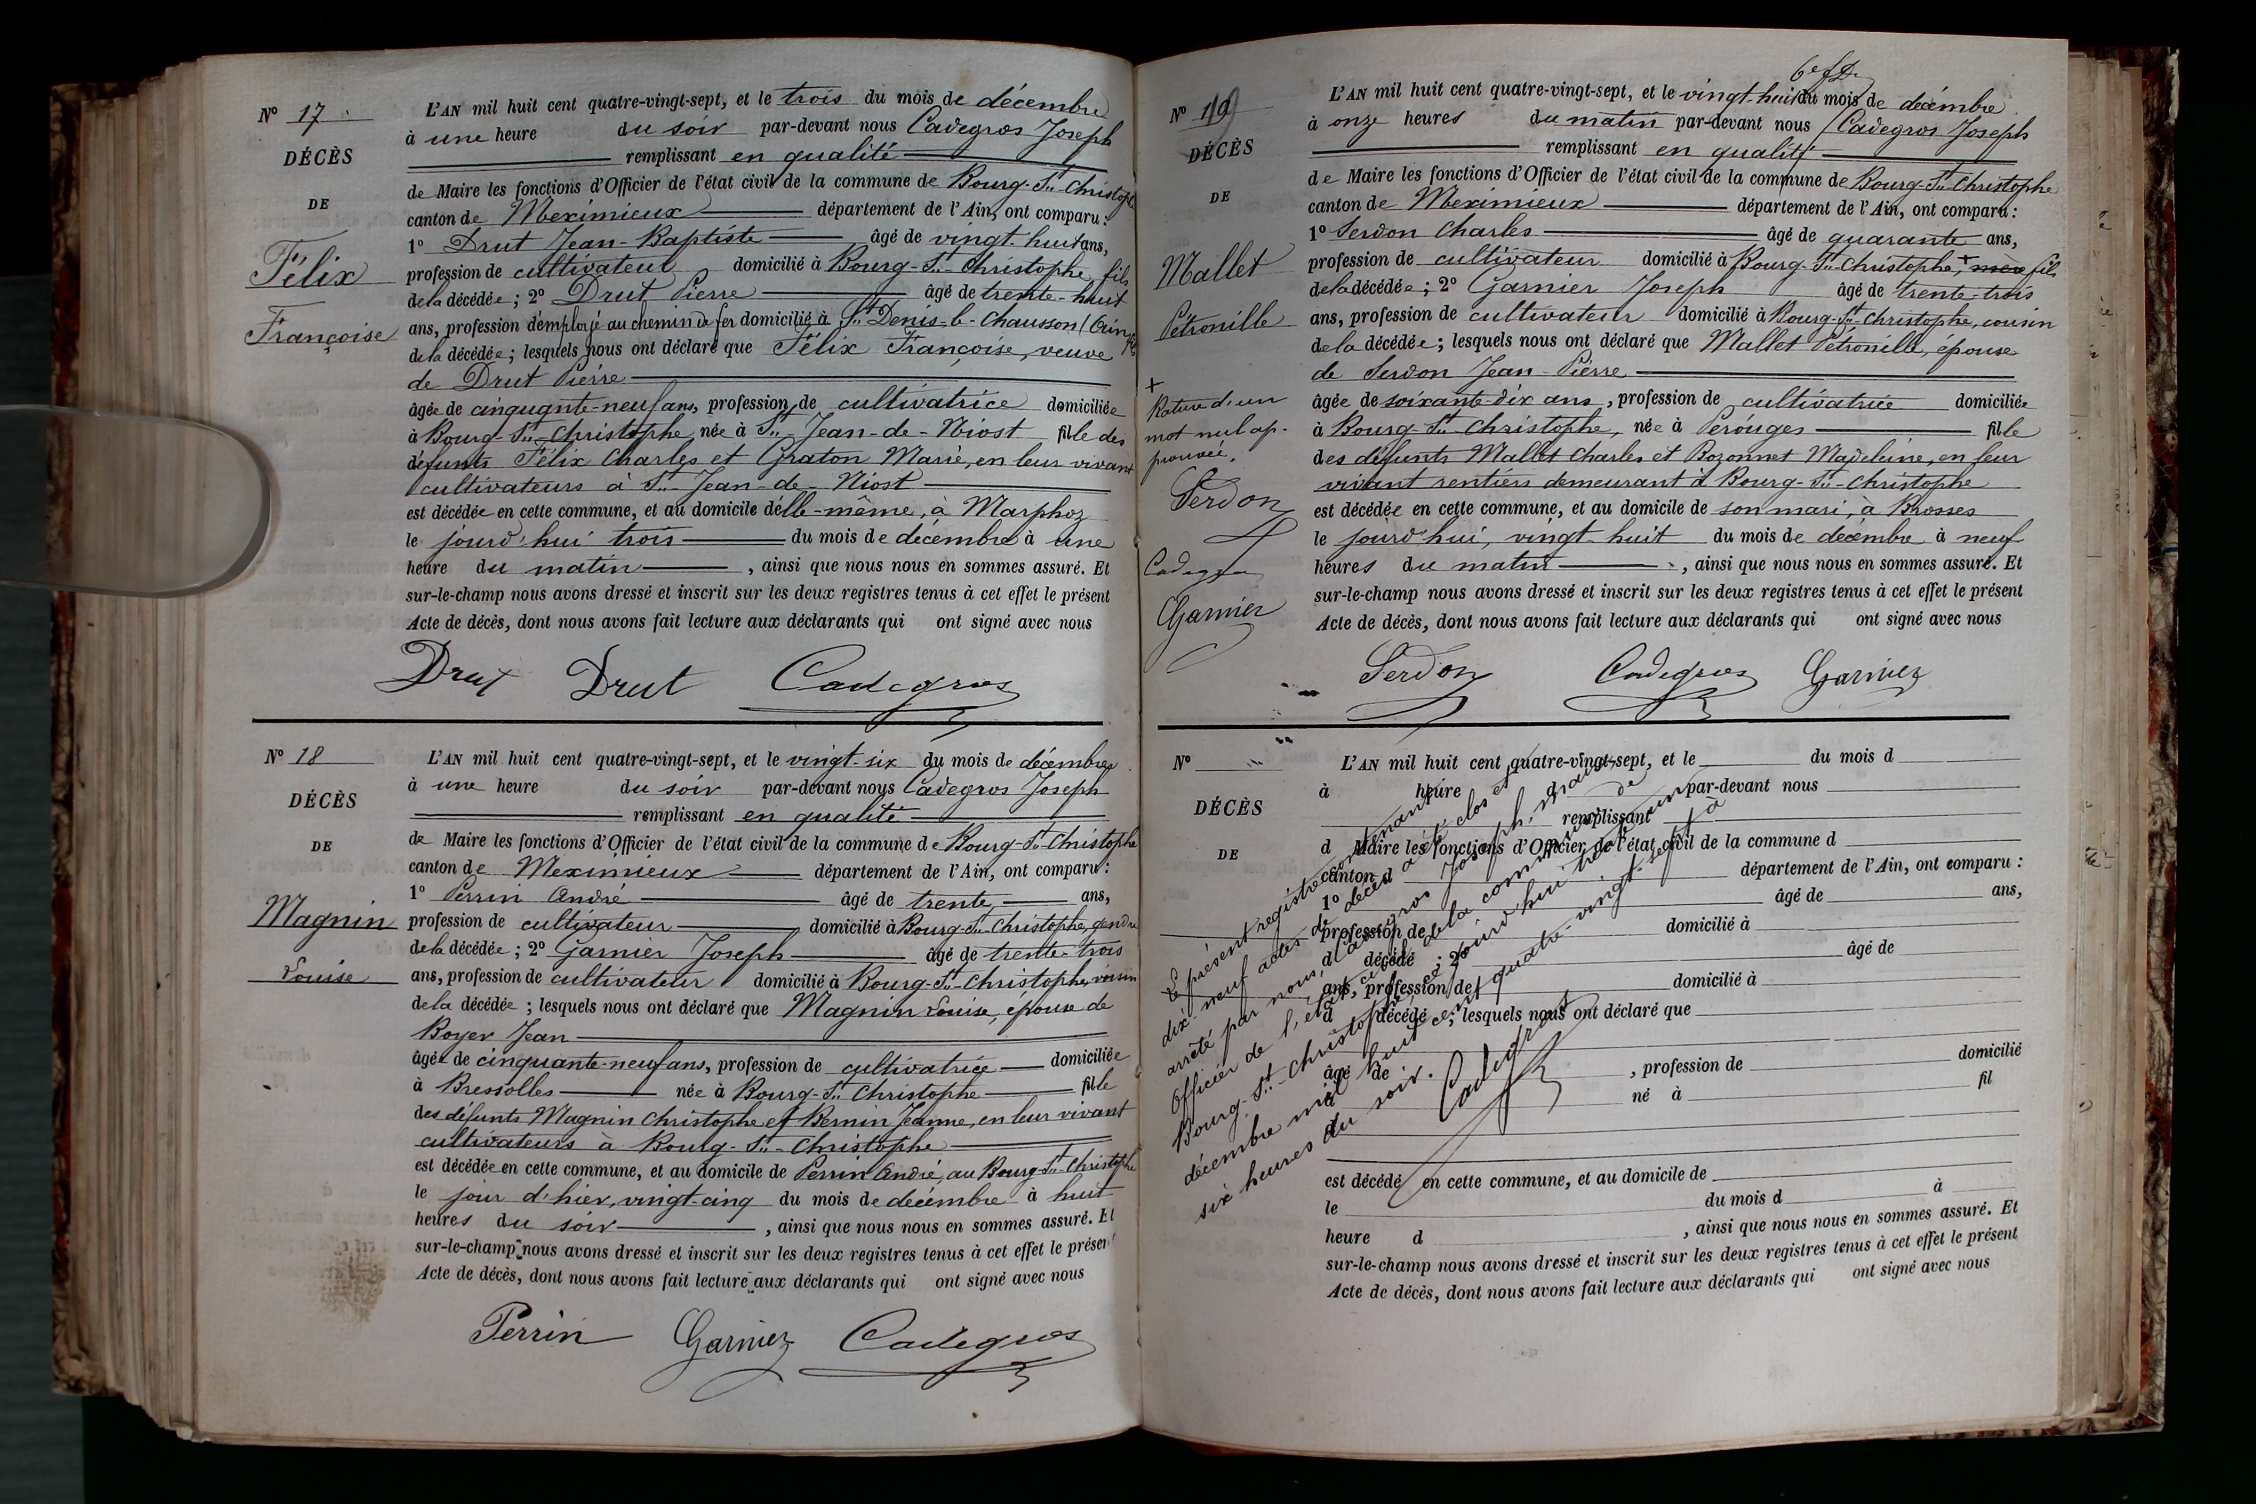 N° 17
DÉCÈS
DE
Félix
Françoise
L'AN mil huit cent quatre-vingt-sept, et le trois du mois de décembre
à une heure du soir par-devant nous Cadegros Joseph
remplissant en qualité
de Maire les fonctions d'Officier de l'état civil de la commune de Bourg-St-Christophe
canton de Meximieux département de l'Ain, ont comparu :
1° Drut Jean-Baptiste âgé de vingt-huit ans,
profession de cultivateur domicilié à Bourg-St-Christophe, fils
de la décédée ; 2° Drut Pierre âgé de trente-huit
ans, profession d'employé au chemin de fer domicilié à St Denis-le-Chausson (Ain) fils
de la décédée ; lesquels nous ont déclaré que Félix Françoise, veuve
de Drut Pierre
âgée de cinquante-neuf ans, profession de cultivatrice domiciliée
à Bourg-St-Christophe, née à St-Jean-de-Niost fille des
défunts Félix Charles et Graton Marie, en leur vivant
cultivateurs à St-Jean-de-Niost
est décédée en cette commune, et au domicile d'elle-même, à Marphoz
le jourd'hui trois du mois de décembre à une
heure du matin, ainsi que nous nous en sommes assuré. Et
sur-le-champ nous avons dressé et inscrit sur les deux registres tenus à cet effet le présent
Acte de décès, dont nous avons fait lecture aux déclarants qui ont signé avec nous
Drut Drut Cadegros
N° 18
DÉCÈS
DE
Magnin
Louise
L'AN mil huit cent quatre-vingt-sept, et le vingt-six du mois de décembre
à une heure du soir par-devant nous Cadegros Joseph
remplissant en qualité
de Maire les fonctions d'Officier de l'état civil de la commune de Bourg-St-Christophe
canton de Meximieux département de l'Ain, ont comparu :
1° Perrin André âgé de trente ans,
profession de cultivateur domicilié à Bourg-St-Christophe, gendre
de la décédée ; 2° Garnier Joseph âgé de trente-trois
ans, profession de cultivateur domicilié à Bourg-St-Christophe, voisin
de la décédée ; lesquels nous ont déclaré que Magnin Louise, épouse de
Boyer Jean
âgée de cinquante-neuf ans, profession de cultivatrice domiciliée
à Bressolles née à Bourg-St-Christophe fille
des défunts Magnin Christophe et Bernin Jeanne, en leur vivant
cultivateurs à Bourg-St-Christophe
est décédée en cette commune, et au domicile de Perrin André, au Bourg-St-Christophe
le jour d'hier, vingt-cinq du mois de décembre à huit
heures du soir, ainsi que nous nous en sommes assuré. Et
sur-le-champ nous avons dressé et inscrit sur les deux registres tenus à cet effet le présent
Acte de décès, dont nous avons fait lecture aux déclarants qui ont signé avec nous
Perrin Garnier Cadegros
N° 19
DÉCÈS
DE
Mallet
Pétronille
+
Rature d'un
mot nul ap-
prouvée.
Serdon
Cadegros
Garnier
L'AN mil huit cent quatre-vingt-sept, et le vingt-huit du mois de décembre
à onze heures du matin par-devant nous Cadegros Joseph
remplissant en qualité
de Maire les fonctions d'Officier de l'état civil de la commune de Bourg-St-Christophe
canton de Meximieux département de l'Ain, ont comparu :
1° Serdon Charles âgé de quarante ans,
profession de cultivateur domicilié à Bourg-St-Christophe, + mère fils
de la décédée ; 2° Garnier Joseph âgé de trente-trois
ans, profession de cultivateur domicilié à Bourg-St-Christophe, cousin
de la décédée ; lesquels nous ont déclaré que Mallet Pétronille, épouse
de Serdon Jean-Pierre
âgée de soixante-dix ans, profession de cultivatrice domiciliée
à Bourg-St-Christophe, née à Pérouges fille
des défunts Mallet Charles et Bozonnet Madeleine, en leur
vivant rentiers demeurant à Bourg-St-Christophe
est décédée en cette commune, et au domicile de son mari, à Brosses
le jourd'hui, vingt-huit du mois de décembre à neuf
heures du matin, ainsi que nous nous en sommes assuré. Et
sur-le-champ nous avons dressé et inscrit sur les deux registres tenus à cet effet le présent
Acte de décès, dont nous avons fait lecture aux déclarants qui ont signé avec nous
Serdon Cadegros Garnier
N°
DÉCÈS
DE
L'AN mil huit cent quatre-vingt-sept, et le du mois d
à heure d par-devant nous
remplissant
d Maire les fonctions d'Officier de l'état civil de la commune d
canton d département de l'Ain, ont comparu :
1° âgé de ans,
profession de domicilié à
d décédé ; 2° âgé de
ans, profession de domicilié à
d décédé ; lesquels nous ont déclaré que
âgé de , profession de domicilié
à né à fil
est décédé en cette commune, et au domicile de
le du mois d à
heure d , ainsi que nous nous en sommes assuré. Et
sur-le-champ nous avons dressé et inscrit sur les deux registres tenus à cet effet le présent
Acte de décès, dont nous avons fait lecture aux déclarants qui ont signé avec nous
Le présent registre contenant
dix-neuf actes de décès a été clos et
arrêté par nous, Cadegros Joseph, maire,
Officier de l'état civil de la commune de
Bourg-St-Christophe, ce jourd'hui trente un
décembre mil huit cent quatre-vingt-sept à
six heures du soir.
Cadegros